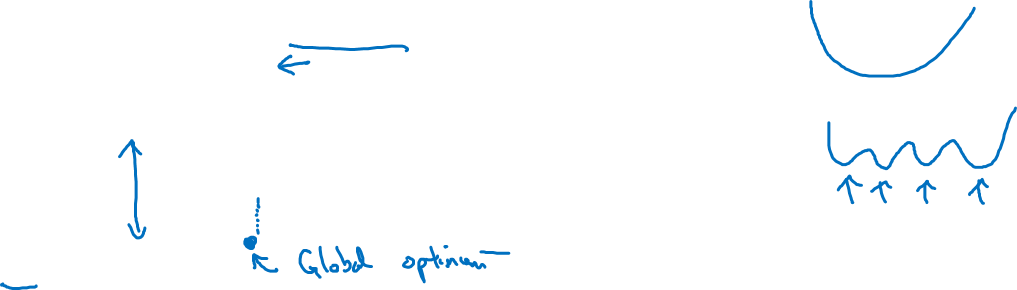 Global optimum